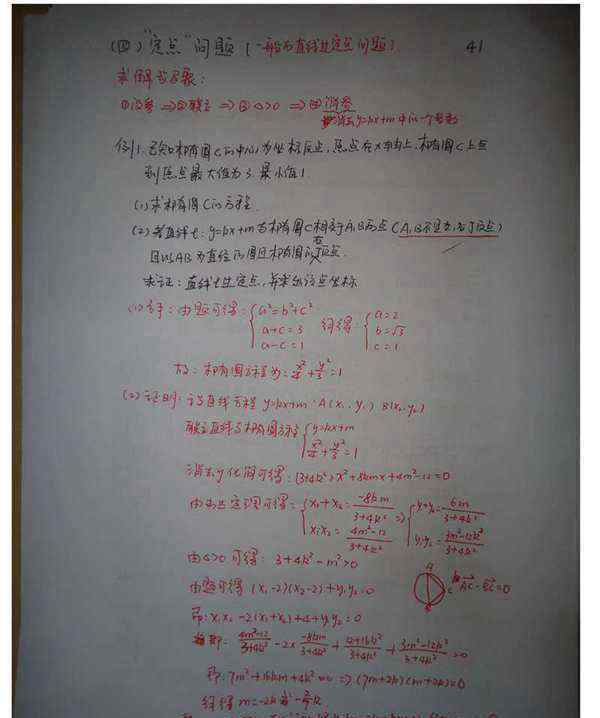 (四)"定点"问题(一般为直线过定点问题) 41
求解步骤:
①设参 ⇒②联立 ⇒ ③△>0 ⇒④消参
消去y=kx+m中的一个参数
例1.已知椭圆C的中心为坐标原点,焦点在X轴上,椭圆C上点
到焦点最大值为3.最小值1.
(1)求椭圆C的方程.
(2)若直线l:y=kx+m与椭圆C相交于A,B两点(A,B不是左,右顶点)
且以AB为直径的圆过椭圆的右顶点.
求证:直线l过定点,并求出该点坐标
(1)解:由题可得:{a²=b²+c² a+c=3 a-c=1 解得:{a=2 b=√3 c=1
故:椭圆方程为:x²/4+y²/3=1
(2)证明:设直线方程y=kx+m A(x₁,y₁) B(x₂,y₂)
联立直线与椭圆方程{y=kx+m x²/4+y²/3=1
消去y化简可得:(3+4k²)x²+8kmx+4m²-12=0
由韦达定理可得:{x₁+x₂=-8km/3+4k² x₁x₂=4m²-12/3+4k² ⇒{y₁+y₂=6m/3+4k² y₁y₂=3m²-12k²/3+4k²
由△>0可得:3+4k²-m²>0
由题可得(x₁-2)(x₂-2)+y₁y₂=0 A C AC·BC=0
即:x₁x₂-2(x₁+x₂)+4+y₁y₂=0
即:4m²-12/3+4k²-2×-8km/3+4k²+12+16k²/3+4k²+3m²-12k²/3+4k²=0
即:7m²+16km+4k²=0⇒(7m+2k)(m+2k)=0
解得m=-2k或-2/7k